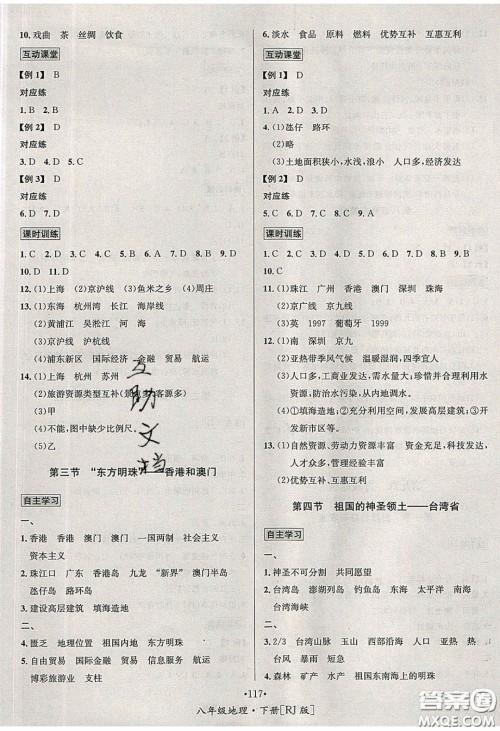 10. 戏曲 茶 丝绸 饮食
互动课堂
【例 1】 B
对应练
1. B 2. B
【例 2】 D
对应练
3. D 4. D 5. C
【例 3】 D
对应练
6. D 7. D
课时训练
1. C 2. C 3. C 4. C 5. A 6. C 7. D 8. B 9. B
10. D 11. D
12. (1)上海 (2)京沪线 (3)鱼米之乡 (4)周庄
13. (1)上海 杭州湾 长江 海岸线
(2)黄浦江 吴淞江 河 海
(3)京沪线 沪杭线
(4)浦东新区 国际经济 金融 贸易 航运
14. (1)上海 杭州 苏州
(2)旅游资源类型互补(景 客源多)
(3)甲
(4)不能,图中缺少比例尺。
(5)乙
第三节 “东方明珠”——香港和澳门
自主学习
一、
1. 香港 香港 澳门 澳门 一国两制 社会主义
资本主义
2. 珠江口 广东 香港岛 九龙 “新界” 澳门半岛
氹仔岛 路环岛
3. 建设高层建筑 填海造地
二、
4. 匮乏 地理位置 祖国内地 东方明珠
5. 自由贸易 国际金融 贸易 信息服务 航运
博彩旅游业 支柱产业
6. 淡水 食品 原料 燃料 优势互补 互惠互利
互动课堂
【例 1】 D
对应练
1. A 2. D 3. D
4. (1)氹仔 路环
(2)略
(3)土地面积狭小,水浅,浪小 人口多,经济发达
【例 2】 D
对应练
5. C 6. D 7. D
课时训练
1. C 2. A 3. A 4. C 5. D 6. C 7. D 8. A 9. D
10. C
11. (1)珠江 广州 香港 澳门 深圳 珠海
(2)京广 京九线
(3)英 1997 葡萄牙 1999
12. (1)南 深圳 京九
(2)亚热带季风气候 温暖湿润,四季宜人
(3)人口多,工商业发达,需水量大。提高水资源利用
率,防治水污染,从内地调水。
(4)①填海造地;②充分利用空间,发展高层建筑;
③防治土地污染,提高土地资源利用率等。
13. (1)自然资源、劳动力资源丰富 资金充足,科技发
达,人才丰富
(2)优势互补、互惠互利
第四节 祖国的神圣领土——台湾省
自主学习
一、
1. 神圣不可分割 共同愿望
2. 台湾岛 澎湖列岛 钓鱼岛 东海 太平洋 南海
台湾海峡
二、
3. 2/3 台湾山脉 玉山 西部沿海 人口 亚热 热
台风 暴雨 短 大
4. 台北 祖国大陆 福建 广东 高山族
互助文档
·117·
八年级地理·下册[RJ 版]
答案圈
MXQE.COM